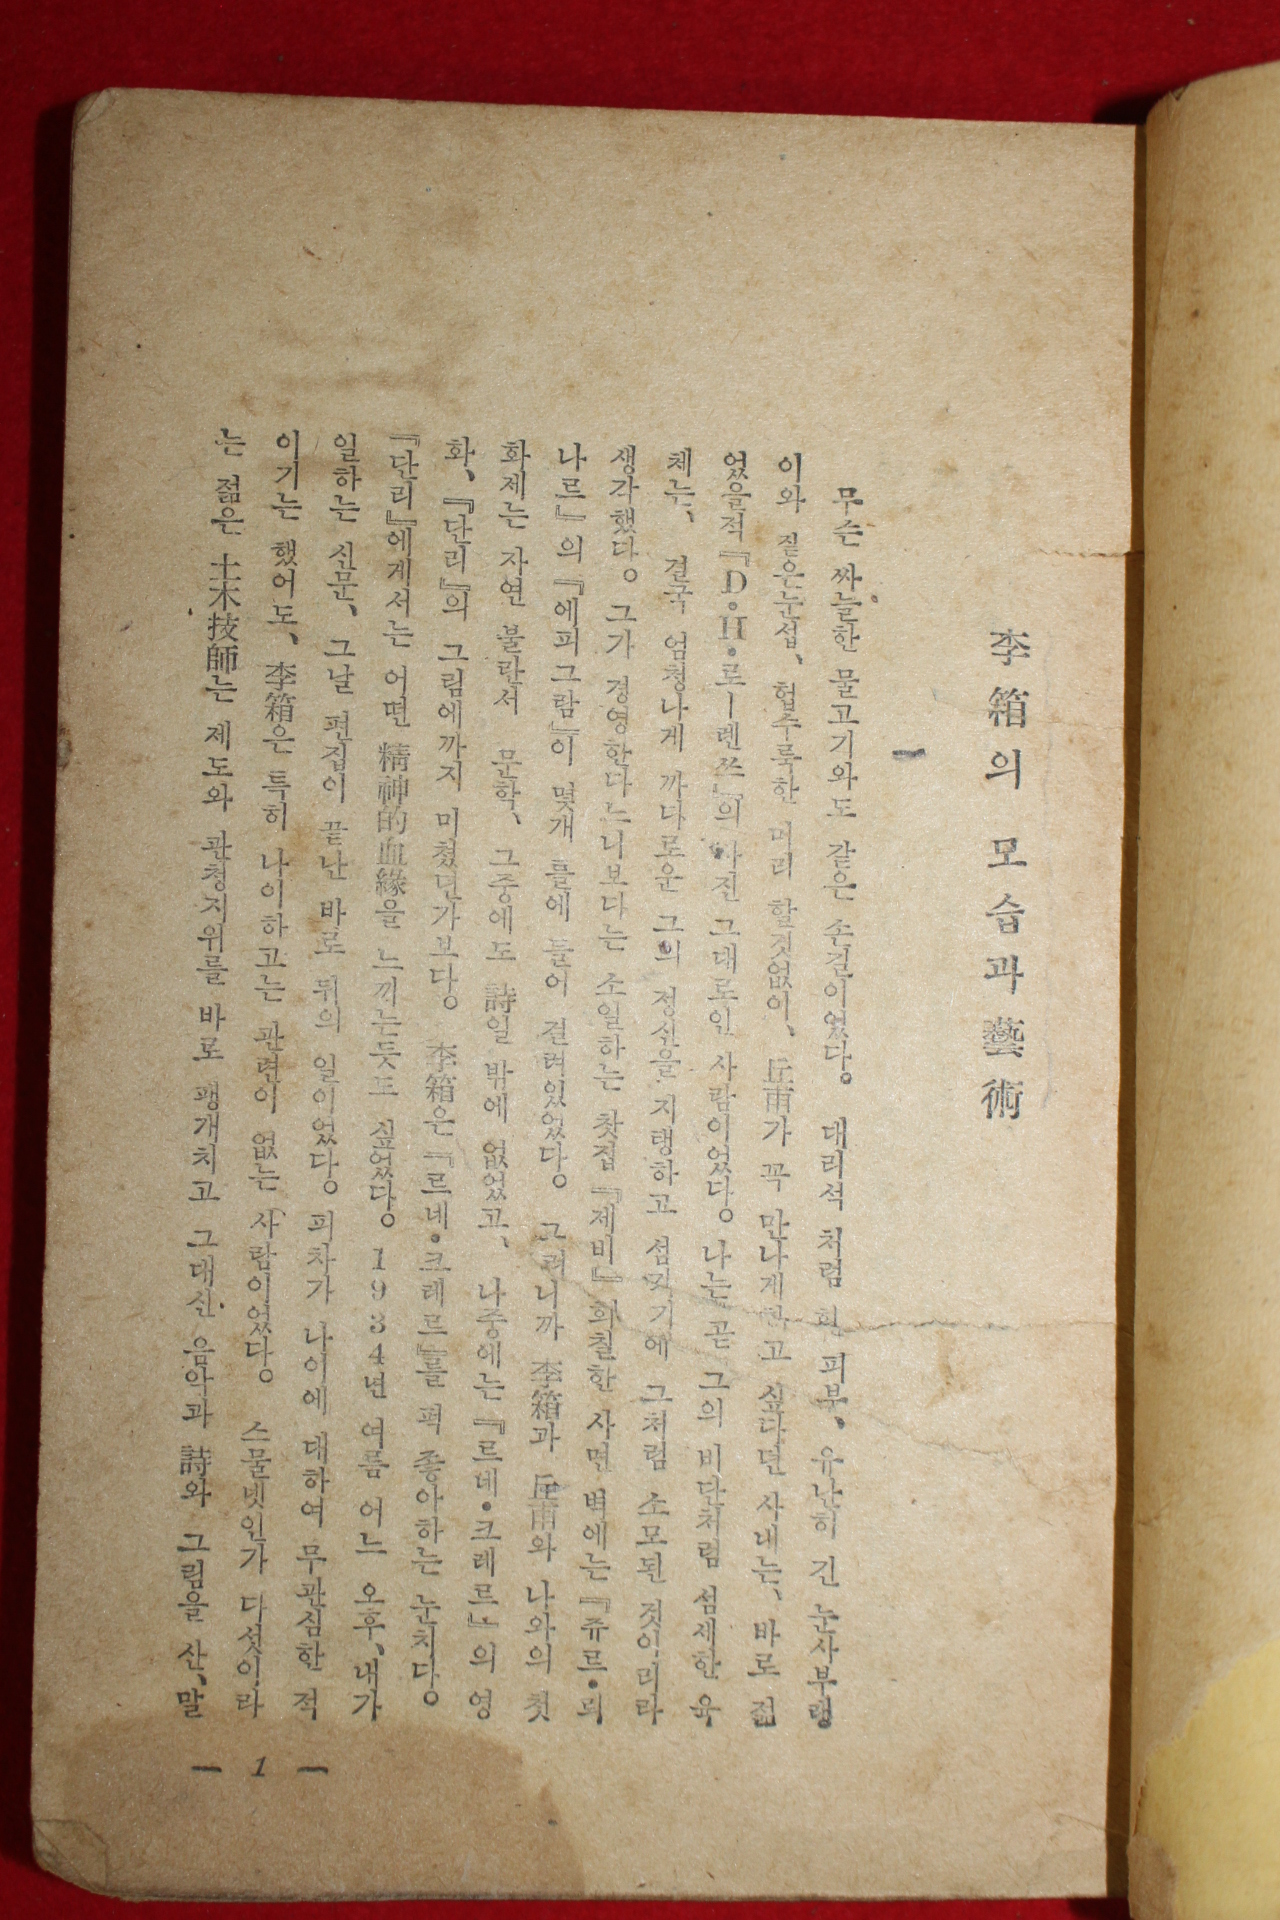 李箱의 모습과 藝術
一
무슨 싸늘한 물고기와도 같은 손길이었다。 대리석 처럼 흰 피부、 유난히 긴 눈사부랭
이와 짙은눈섭、 헙수룩한 머리 할것없이、 丘甫가 꼭 만나게하고 싶다던 사내는、 바로 젊
었을적『D·H·로ー렌쓰』의 사진 그대로인 사람이었다。 나는 곧 그의 비단처럼 섬세한 육
체는、 결국 엄청나게 까다로운 그의 정신을 지탱하고 섬기기에 그처럼 소모된 것이리라
생각했다。 그가 경영한다느니보다는 소일하는 찻집『제비』회칠한 사면 벽에는『쥬르·뢰
나르』의『에피그람』이 몇개 틀에 들어 걸려있었다。 그러니까 李箱과 丘甫와 나와의 첫
화제는 자연 불란서 문학、 그중에도 詩일 밖에 없었고、 나중에는『르네·크레르』의 영
화、『단리』의 그림에까지 미쳤던가보다。 李箱은『르네·크레르』를 퍽 좋아하는 눈치다。
『단리』에게서는 어떤 精神的血緣을 느끼는듯도 싶었다。 1934년 여름 어느 오후、 내가
일하는 신문、 그날 편집이 끝난 바로 뒤의 일이었다。 피차가 나이에 대하여 무관심한 적
이기는 했어도、 李箱은 특히 나이하고는 관련이 없는 사람이었다。 스물넷인가 다섯이라
는 젊은 土木技師는 제도와 관청지위를 바로 팽개치고 그대신 음악과 詩와 그림을 산、말
— 1 —